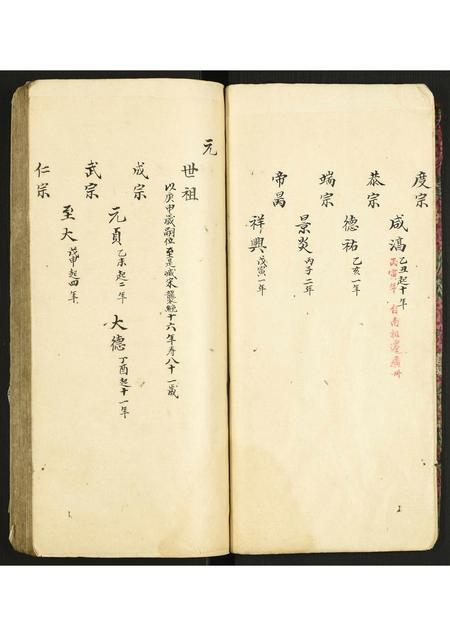 度宗
咸淳 乙丑起十年
丙寅年 台南祖遷廣州
恭宗
德祐 乙亥一年
端宗
景炎 丙子二年
帝昺
祥興 戊寅一年
元
世祖
以庚申歲嗣位至是滅宋襲統十六年壽八十一歲
成宗
元貞 乙未起二年 大德 丁酉起十一年
武宗
至大 戊申起四年
仁宗